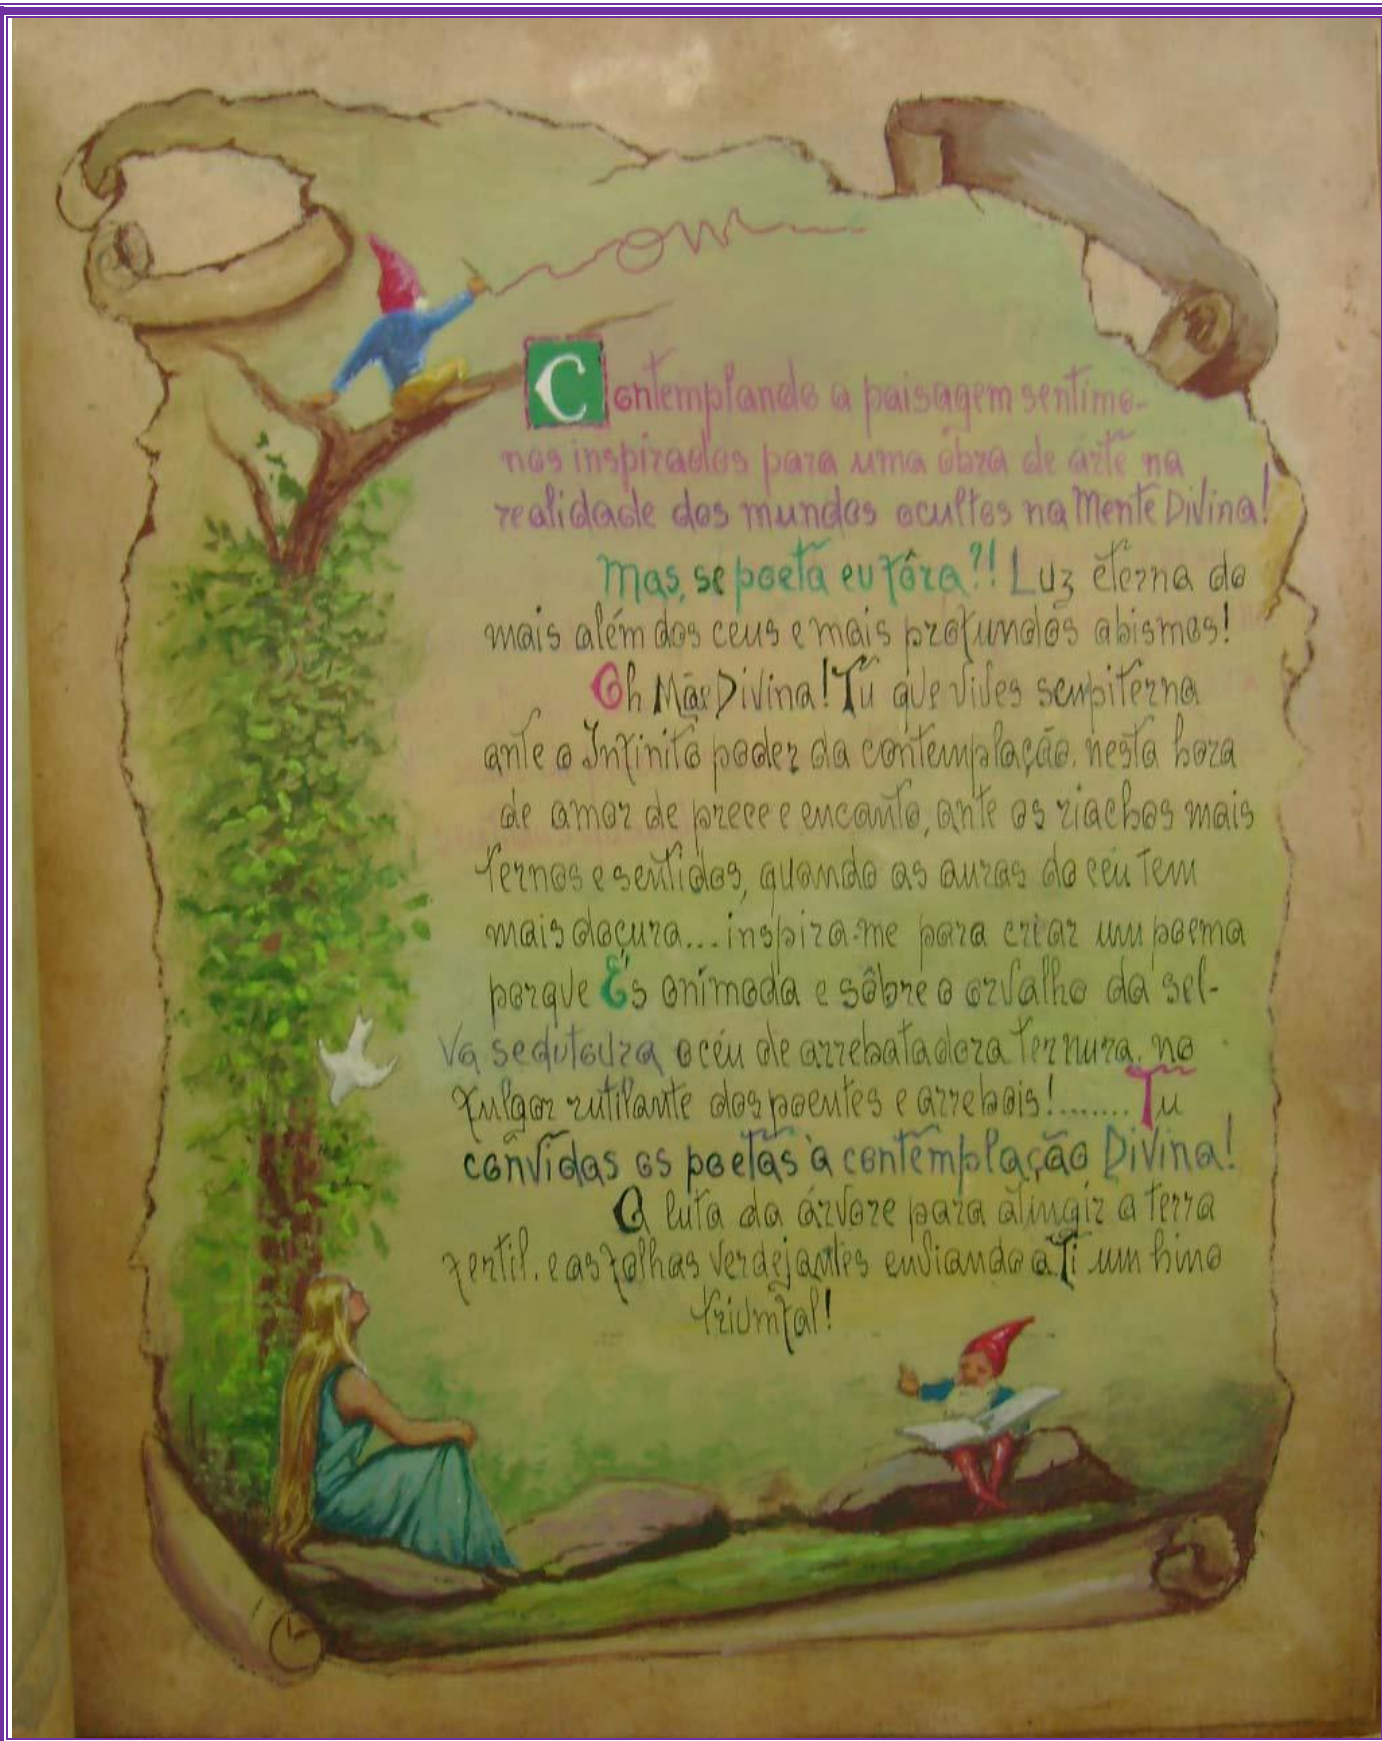 om
Contemplando a paisagem sentimo-
nos inspirados para uma obra de arte na
realidade dos mundos ocultos na Mente Divina!
Mas, se poeta eu fôra?! Luz eterna do
mais além dos ceus e mais profundos abismos!
Oh Mãe Divina! Tu que vives sempiterna
ante o Infinito poder da contemplação, nesta hora
de amor de prece e encanto, ante os riachos mais
ternos e sentidos, quando as auras do céu tem
mais doçura... inspira-me para criar um poema
porque És onímoda e sôbre o orvalho da sel-
va sedutoura o céu de arrebatadora ternura, no
fulgor rutilante dos poentes e arrebois!........Tu
convidas os poetas à contemplação Divina!
A luta da árvore para atingir a terra
fertil, e as folhas verdejantes enviando a Ti um hino
triumfal!